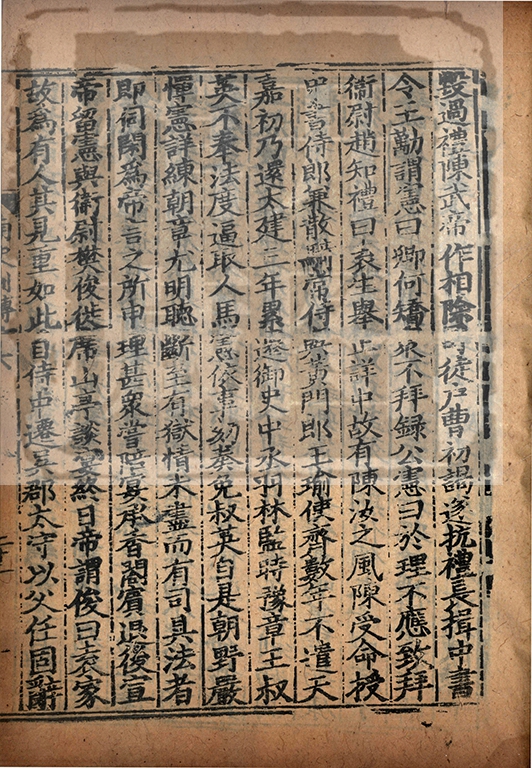 設過禮陳武帝作相除司徒户曹初謁遂抗禮長揖中書
令王勱謂憲曰卿何矯衆不拜録公憲曰於理不應致拜
衛尉趙知禮曰袁生舉止詳中故有陳汝之風陳受命授
中書侍郎兼散騎常侍與黄門郎王瑜使齊數年不遣天
嘉初乃還太建三年累遷御史中丞羽林監時豫章王叔
英不奉法度逼取人馬憲依事劾奏免叔英自是朝野嚴
憚憲詳練朝章尤明聽斷至有獄情未盡而有司具法者
即伺閑為帝言之所申理甚衆嘗陪宴承香閣賓退後宣
帝留憲與衛尉樊俊徙席山亭談宴終日帝謂俊曰袁家
故為有人其見重如此自侍中遷吳郡太守以父任固辭